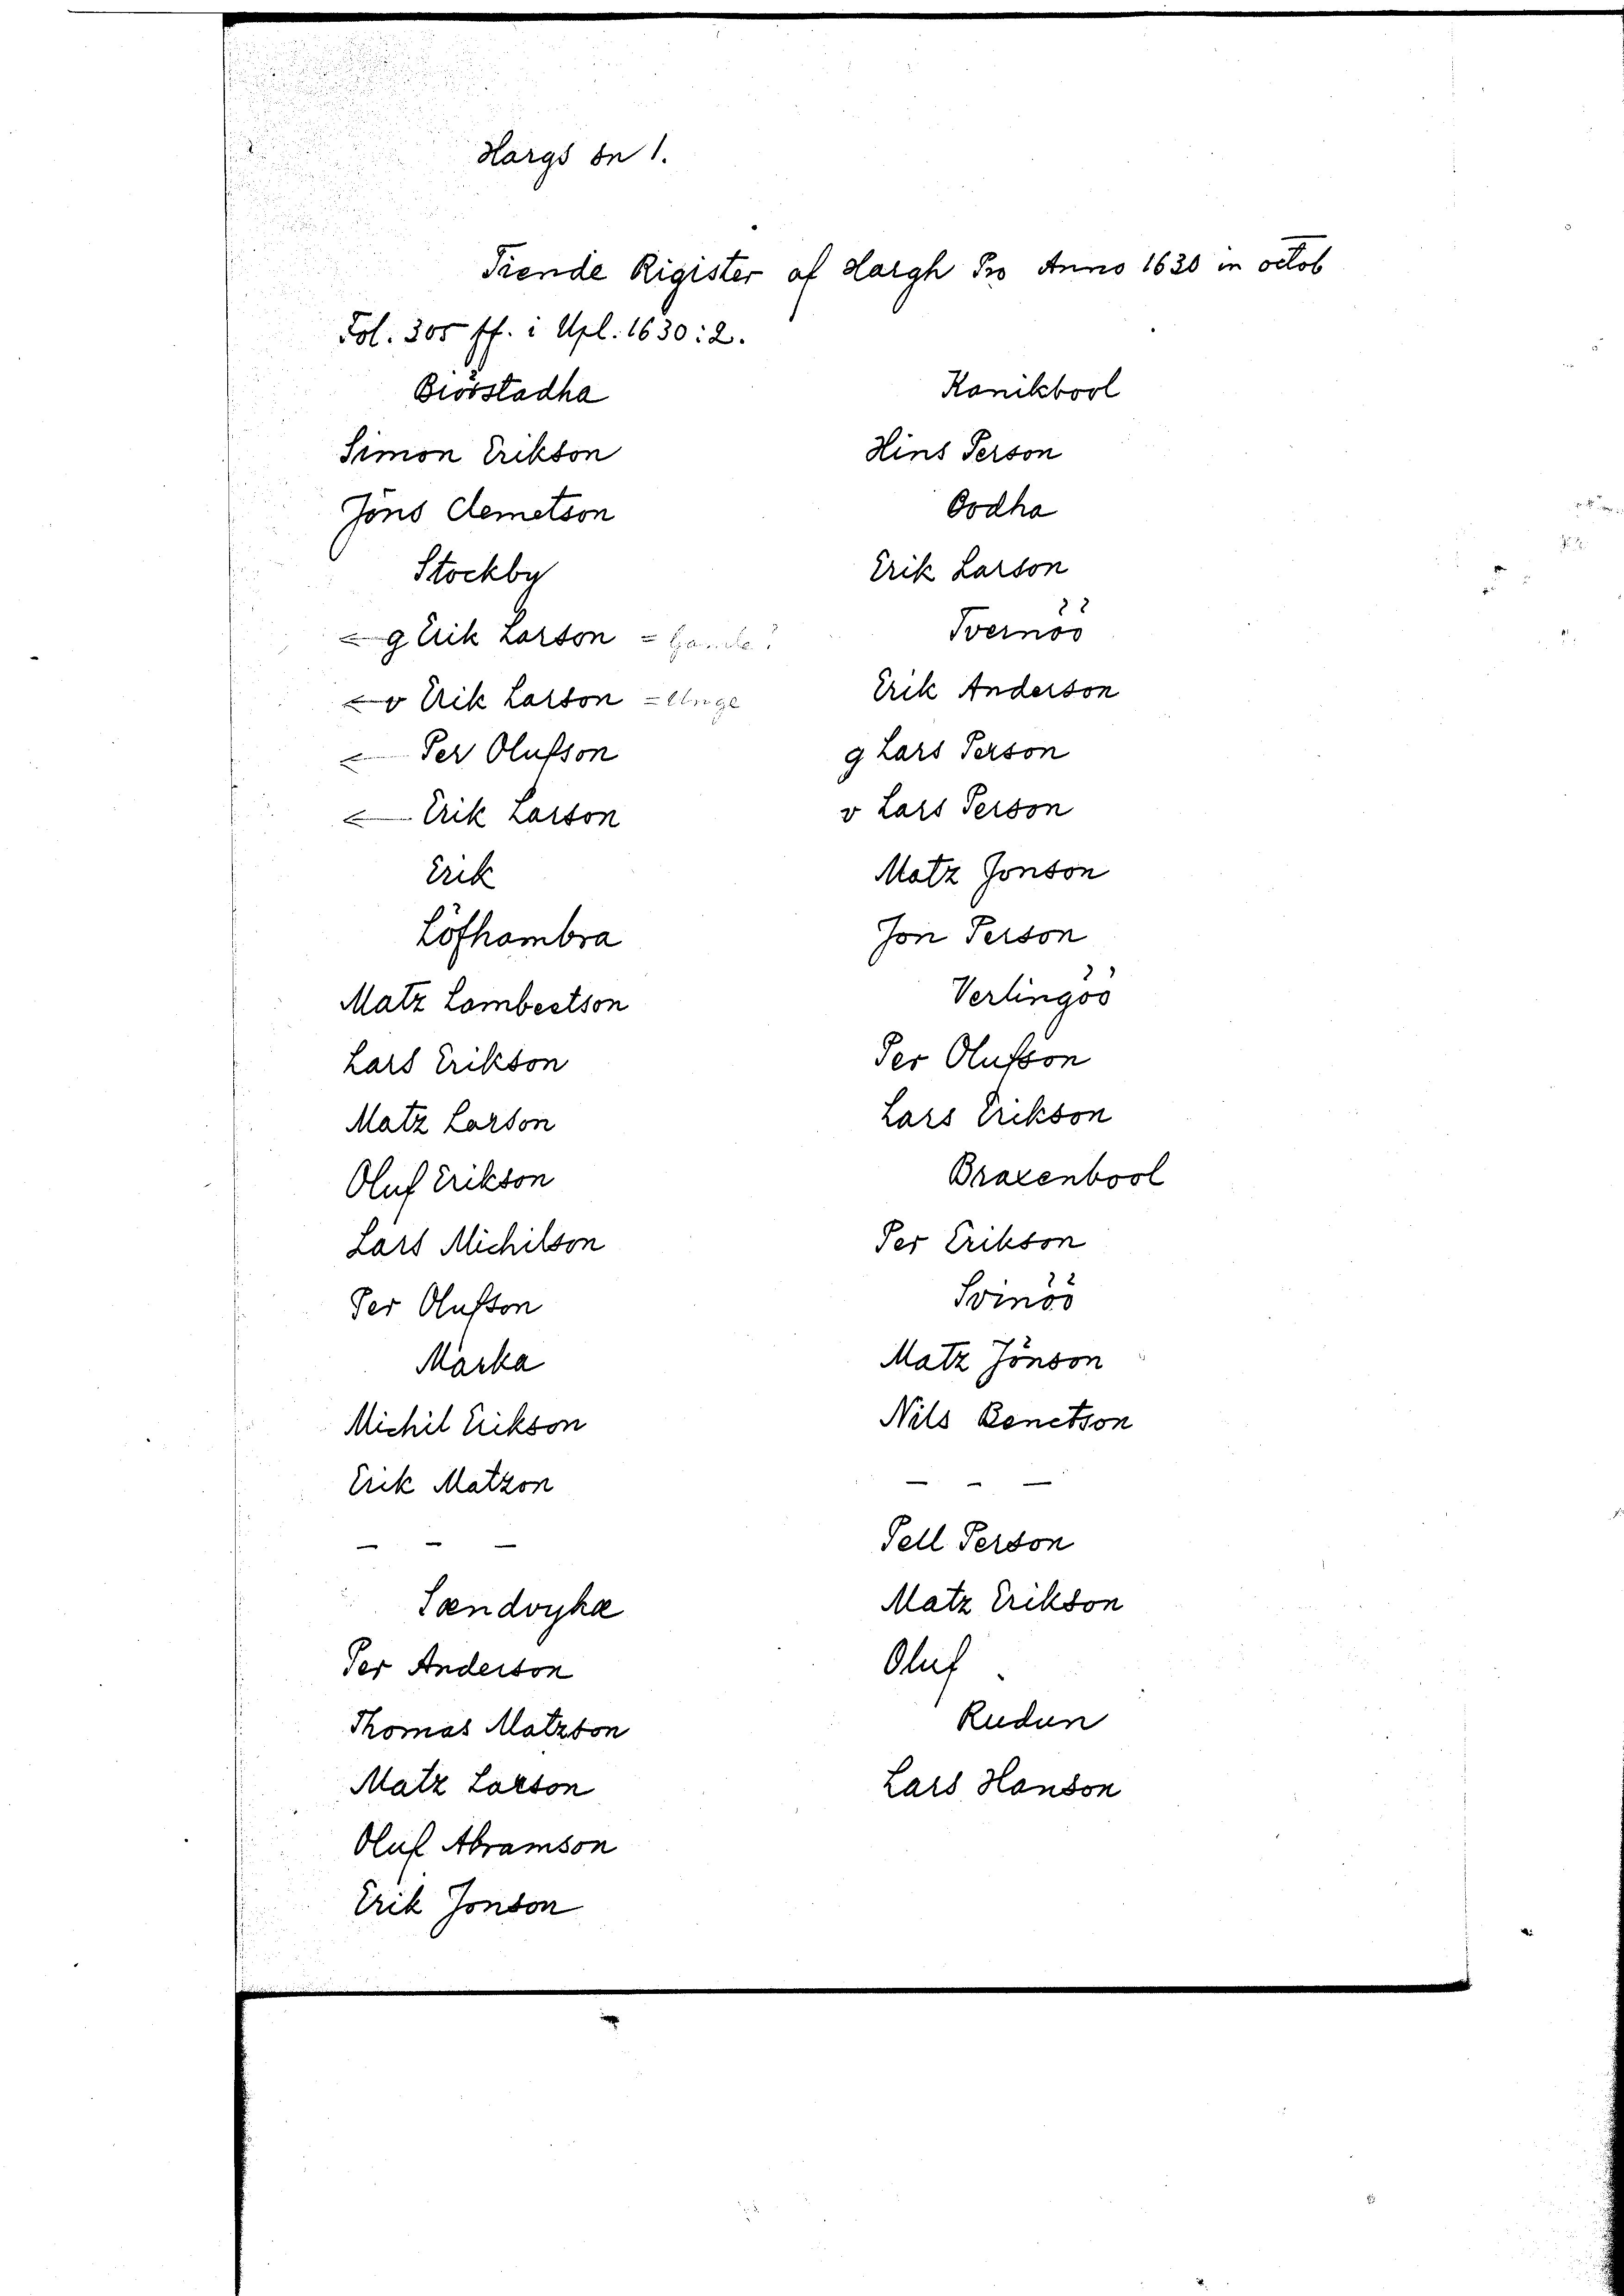 Hargs sn 1.
Tiende Rigister af Hargh Pro Anno 1630 in octob
Fol. 305 ff. i Upl. 1630:2.
Biöstadha
Simon Erikson
Jöns Clemetson
Stockby
g Erik Larson =
v Erik Larson = Unge
Per Olufson
Erik Larson
Erik
Löfhambra
Matz Lambertson
Lars Erikson
Matz Larson
Oluf Erikson
Lars Michilson
Per Olufson
Marka
Michil Erikson
Erik Matzon
- - -
Sændvyka
Per Anderson
Thomas Matzson
Matz Larson
Oluf Abramson
Erik Jonson
Kanikbool
Hins Person
Oodha
Erik Larson
Tvernöö
Erik Anderson
g Lars Person
v Lars Person
Matz Jonson
Jon Person
Verlingöö
Per Olufson
Lars Erikson
Braxenbool
Per Erikson
Svinöö
Matz Jönson
Nils Benctson
- - -
Pell Person
Matz Erikson
Oluf
Rudun
Lars Hanson